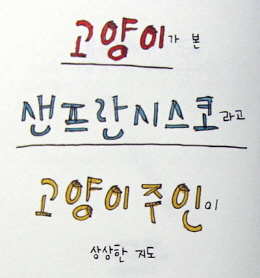 고양이가 본
샌프란시스코라고
고양이주인이
상상한 지도